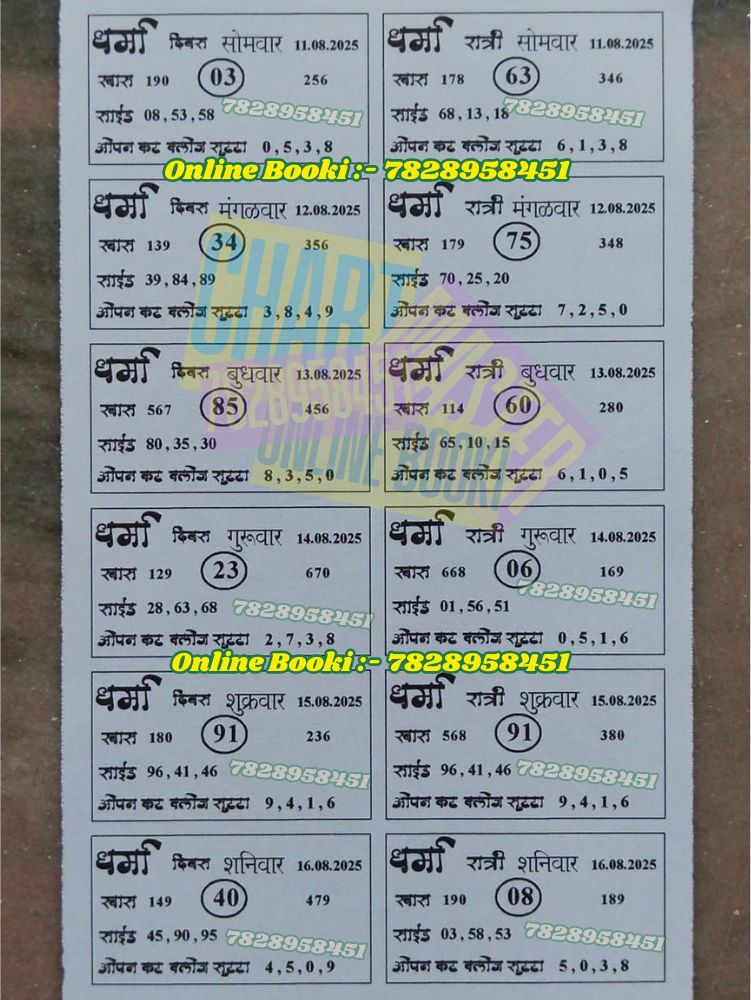 धर्मा दिवस सोमवार 11.08.2025
खास 190 03 256
साईड 08,53,58
7828958451
ओपन कट क्लोज सुट्टा 0,5,3,8
धर्मा रात्री सोमवार 11.08.2025
खास 178 63 346
साईड 68,13,18
7828958451
ओपन कट क्लोज सुट्टा 6,1,3,8
Online Booki :- 7828958451
धर्मा दिवस मंगळवार 12.08.2025
खास 139 34 356
साईड 39,84,89
ओपन कट क्लोज सुट्टा 3,8,4,9
धर्मा रात्री मंगळवार 12.08.2025
खास 179 75 348
साईड 70,25,20
ओपन कट क्लोज सुट्टा 7,2,5,0
CHART MASTER
7828958451
ONLINE BOOKI
धर्मा दिवस बुधवार 13.08.2025
खास 567 85 456
साईड 80,35,30
ओपन कट क्लोज सुट्टा 8,3,5,0
धर्मा रात्री बुधवार 13.08.2025
खास 114 60 280
साईड 65,10,15
ओपन कट क्लोज सुट्टा 6,1,0,5
धर्मा दिवस गुरूवार 14.08.2025
खास 129 23 670
साईड 28,63,68
7828958451
ओपन कट क्लोज सुट्टा 2,7,3,8
धर्मा रात्री गुरूवार 14.08.2025
खास 668 06 169
साईड 01,56,51
7828958451
ओपन कट क्लोज सुट्टा 0,5,1,6
Online Booki :- 7828958451
धर्मा दिवस शुक्रवार 15.08.2025
खास 180 91 236
साईड 96,41,46
7828958451
ओपन कट क्लोज सुट्टा 9,4,1,6
धर्मा रात्री शुक्रवार 15.08.2025
खास 568 91 380
साईड 96,41,46
7828958451
ओपन कट क्लोज सुट्टा 9,4,1,6
धर्मा दिवस शनिवार 16.08.2025
खास 149 40 479
साईड 45,90,95
7828958451
ओपन कट क्लोज सुट्टा 4,5,0,9
धर्मा रात्री शनिवार 16.08.2025
खास 190 08 189
साईड 03,58,53
7828958451
ओपन कट क्लोज सुट्टा 5,0,3,8